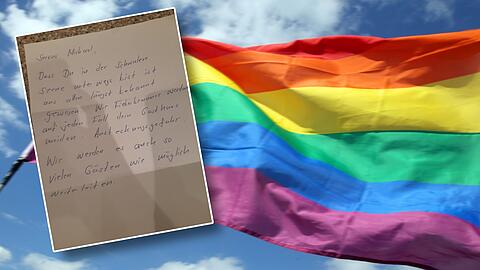 Servus Michael,
Dass Du in der Schwulen
Scene unterwegs bist ist
uns allen längst bekannt
gewesen. Wir werden
auf jeden Fall dein Gasthaus
meiden. Ansteckungsgefahr.
Wir werden es auch so
vielen Gästen wie möglich
weiterleiten.